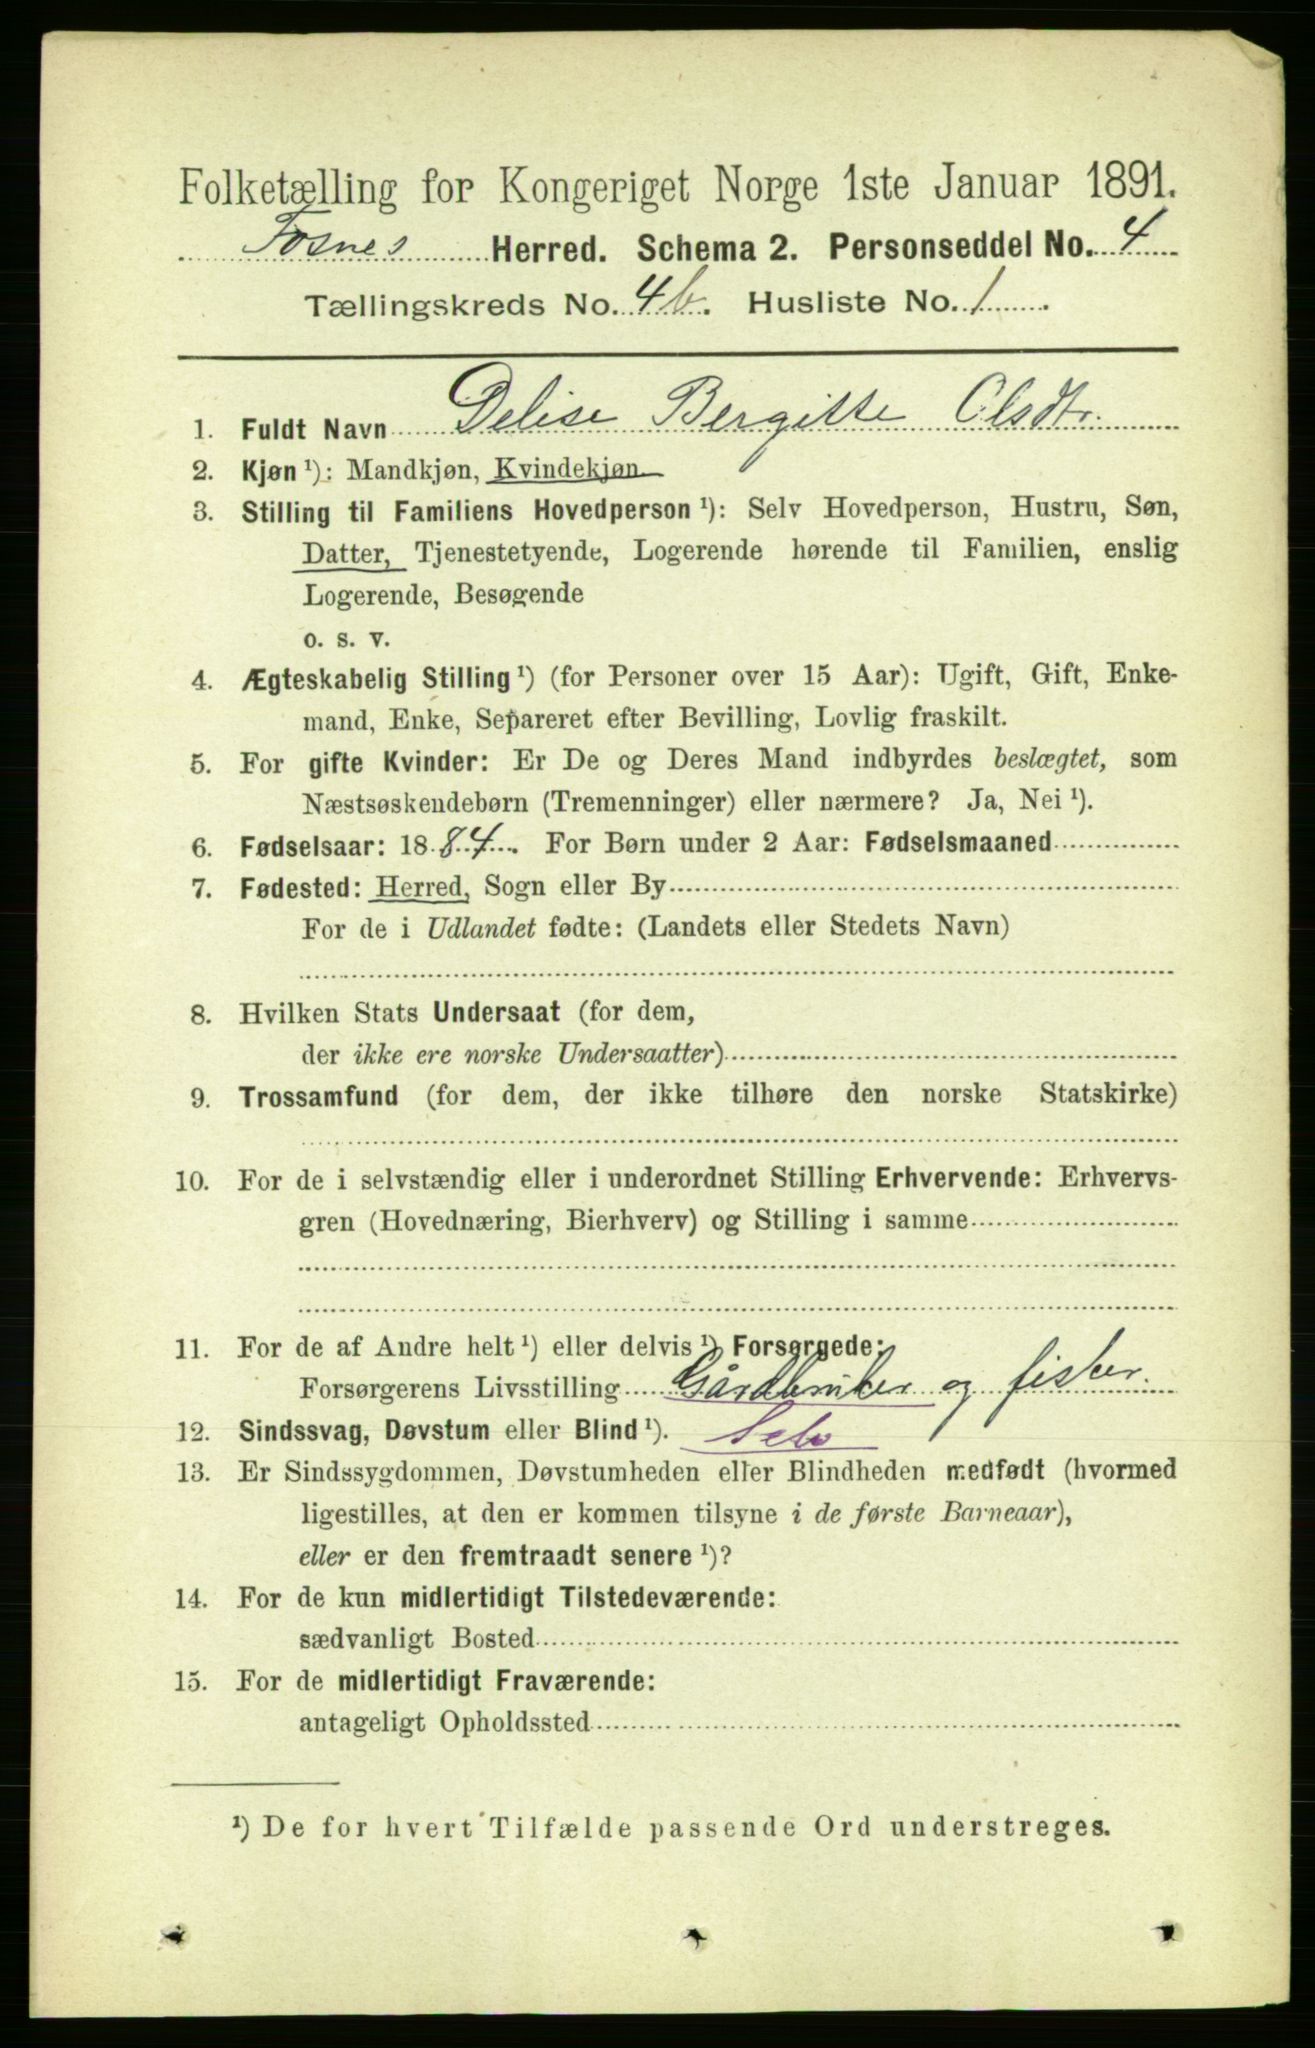 Folketælling for Kongeriget Norge 1ste Januar 1891.
Fosnes Herred. Schema 2. Personseddel No. 4
Tællingskreds No. 4b. Husliste No. 1
1. Fuldt Navn Delise Bergitte Olsdtr.
2. Kjøn ¹): Mandkjøn, Kvindekjøn
3. Stilling til Familiens Hovedperson ¹): Selv Hovedperson, Hustru, Søn,
Datter, Tjenestetyende, Logerende hørende til Familien, enslig
Logerende, Besøgende
o. s. v.
4. Ægteskabelig Stilling ¹) (for Personer over 15 Aar): Ugift, Gift, Enke-
mand, Enke, Separeret efter Bevilling, Lovlig fraskilt.
5. For gifte Kvinder: Er De og Deres Mand indbyrdes beslægtet, som
Næstsøskendebørn (Tremenninger) eller nærmere? Ja, Nei ¹).
6. Fødselsaar: 1884. For Børn under 2 Aar: Fødselsmaaned
7. Fødested: Herred, Sogn eller By
For de i Udlandet fødte: (Landets eller Stedets Navn)
8. Hvilken Stats Undersaat (for dem,
der ikke ere norske Undersaatter)
9. Trossamfund (for dem, der ikke tilhøre den norske Statskirke)
10. For de i selvstændig eller i underordnet Stilling Erhvervende: Erhvervs-
gren (Hovednæring, Bierhverv) og Stilling i samme
11. For de af Andre helt ¹) eller delvis ¹) Forsørgede:
Forsørgerens Livsstilling Gårdbruker og fisker.
12. Sindssvag, Døvstum eller Blind ¹). Selv
13. Er Sindssygdommen, Døvstumheden eller Blindheden medfødt (hvormed
ligestilles, at den er kommen tilsyne i de første Barneaar),
eller er den fremtraadt senere ¹)?
14. For de kun midlertidigt Tilstedeværende:
sædvanligt Bosted
15. For de midlertidigt Fraværende:
antageligt Opholdssted
¹) De for hvert Tilfælde passende Ord understreges.